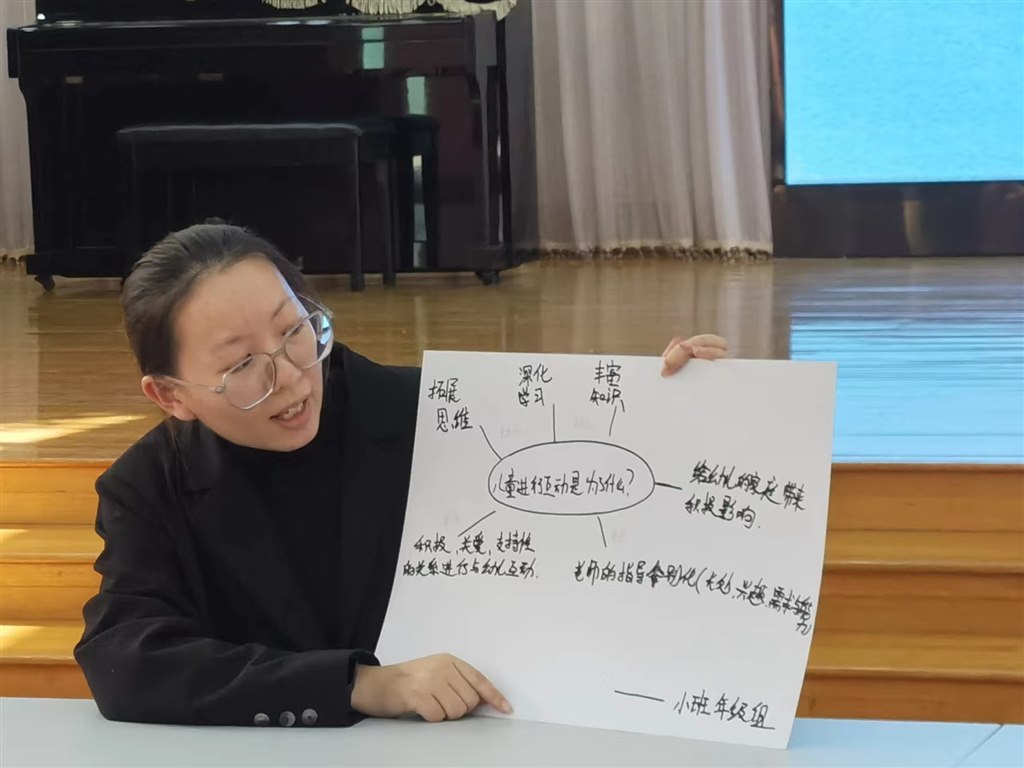 拓展
思维
深化
学习
丰富
知识
儿童进行互动是为什么？
给幼儿的家庭带来
积极影响.
积极、关爱、支持性
的关系进行与幼儿互动.
老师的指导个别化(长处、兴趣、需求与能
力
——小班年级组